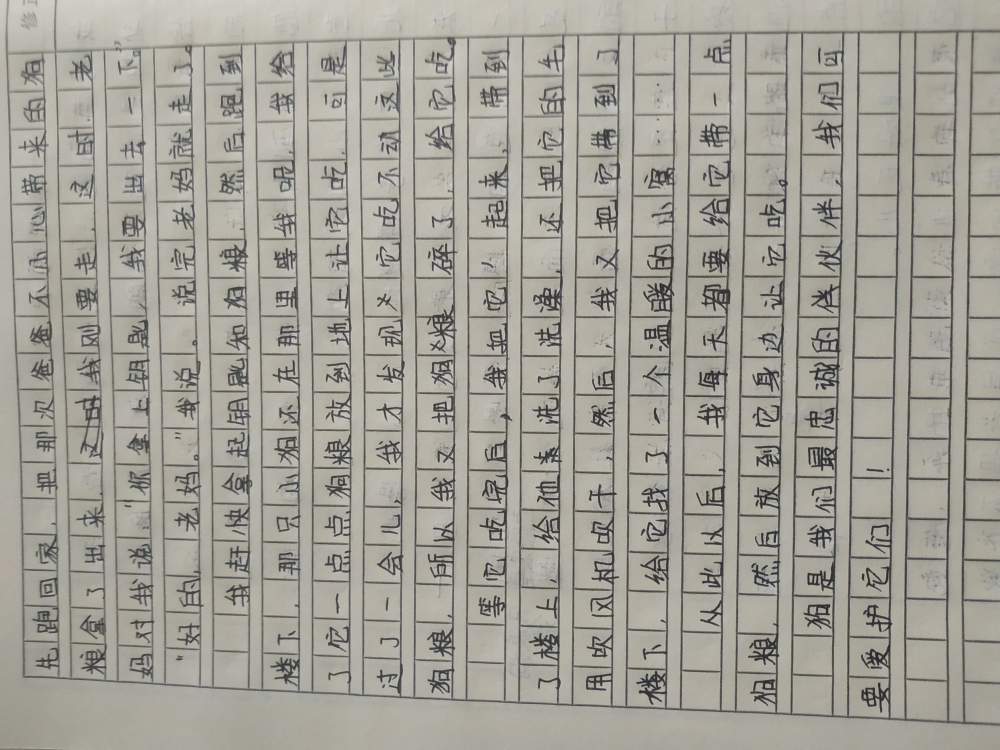 修正
先跑回家，把那次爸爸不小心带来的狗
粮拿了出来，我刚要走，这时，老
妈对我说：“你拿上钥匙，我要出去一下。”
“好的，老妈。”我说。说完老妈就走了。
我赶快拿起钥匙和狗粮，然后跑到
楼下，那只小狗还在那里等我呢，我给
了它一点点狗粮放到地上让它吃，可是
过了一会儿，我才发现它吃不动这些
狗粮，所以我又把狗粮碎了，给它吃。
等它吃完后，我把它起来，带到
了楼上，给他洗了洗澡，还把它的毛
用吹风机吹干，然后，我又把它带到了
楼下，给它找了一个温暖的小窝……
从此以后，我每天都要给它带一点
狗粮，然后放到它身边让它吃。
狗是我们最忠诚的伙伴，我们可
要爱护它们！